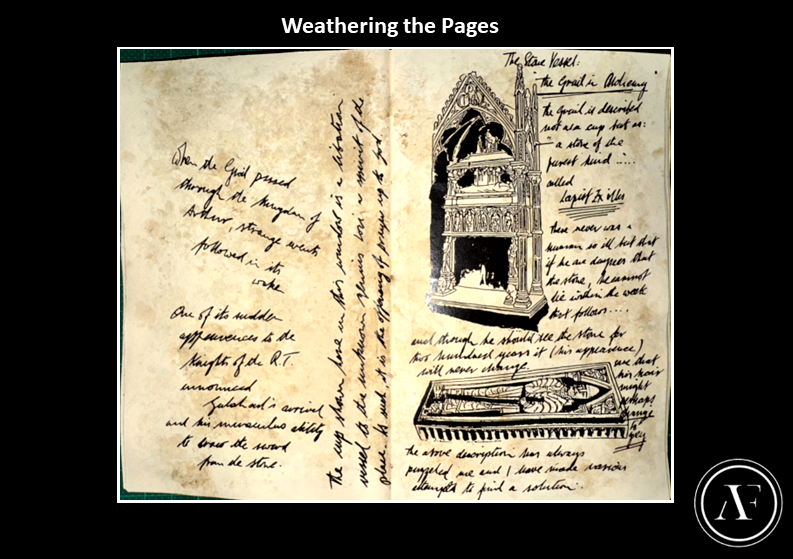 Weathering the Pages
When the Grail passed
through the kingdom of
Arthur, strange events
followed in its
wake
One of its sudden
appearances to the
Knights of the R.T.
announced
Galahad's arrival
and his miraculous ability
to draw the sword
from the stone.
The cup shown here in this window is a libation
vessel to the unknown
place. As such it is the offering of prayer up to God
The Stone Vessel:
"the Grail in Alchemy"
the Grail is described
not as a cup but as:
"a stone of the
purest kind ....
called
Lapsit Exillis
there never was a
human so ill but that
if he one day sees that
the stone, he cannot
die within the week
that follows....
and though he should see the stone for
two hundred years it (his appearance)
will never change.
save that
his hair
might
perhaps
change
to
grey
the above description has always
puzzled me and I have made various
attempts to find a solution.
AF